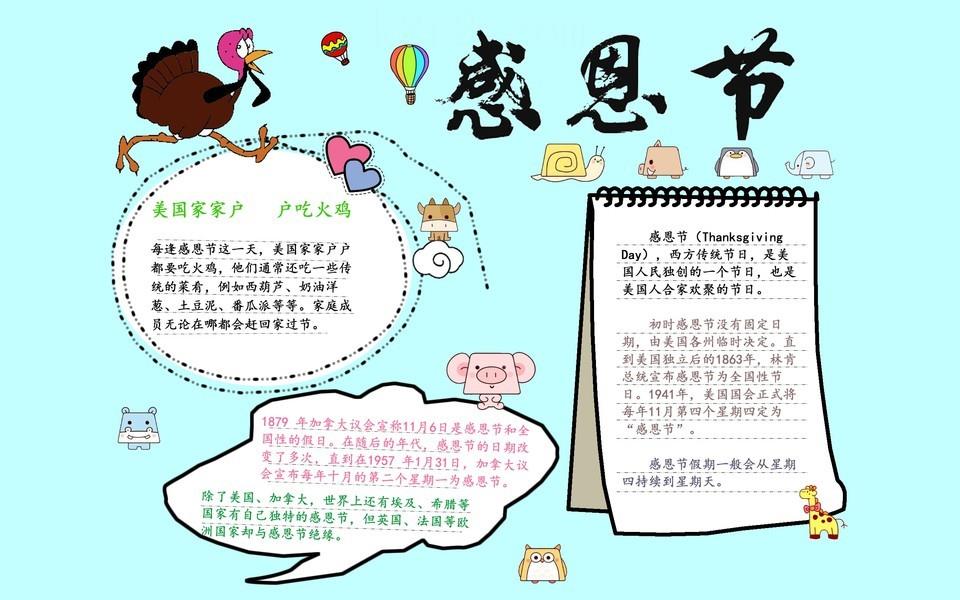 感恩节
美国家家户 户吃火鸡
每逢感恩节这一天，美国家家户户
都要吃火鸡，他们通常还吃一些传
统的菜肴，例如西葫芦、奶油洋
葱、土豆泥、番瓜派等等。家庭成
员无论在哪都会赶回家过节。
感恩节（Thanksgiving
Day），西方传统节日，是美
国人民独创的一个节日，也是
美国人合家欢聚的节日。
初时感恩节没有固定日
期，由美国各州临时决定。直
到美国独立后的1863年，林肯
总统宣布感恩节为全国性节
日。1941年，美国国会正式将
每年11月第四个星期四定为
“感恩节”。
感恩节假期一般会从星期
四持续到星期天。
1879 年加拿大议会宣称11月6日是感恩节和全
国性的假日。在随后的年代，感恩节的日期改
变了多次，直到在1957 年1月31日，加拿大议
会宣布每年十月的第二个星期一为感恩节。
除了美国、加拿大，世界上还有埃及、希腊等
国家有自己独特的感恩节，但英国、法国等欧
洲国家却与感恩节绝缘。